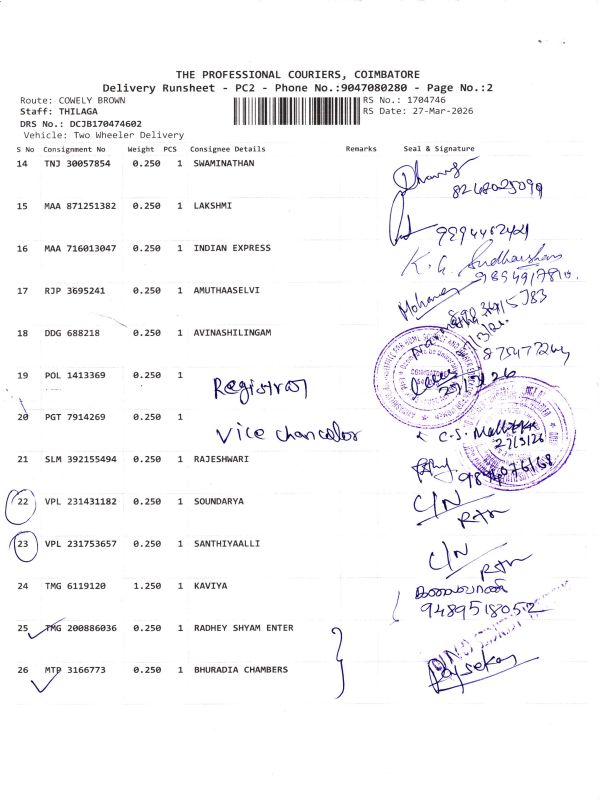 THE PROFESSIONAL COURIERS, COIMBATORE
Delivery Runsheet - PC2 - Phone No.:9047080280 - Page No.:2
Route: COWELY BROWN
RS No.: 1704746
Staff: THILAGA
RS Date: 27-Mar-2026
DRS No.: DCJB170474602
Vehicle: Two Wheeler Delivery
S No Consignment No Weight PCS Consignee Details Remarks Seal & Signature
14 TNJ 30057854 0.250 1 SWAMINATHAN
15 MAA 871251382 0.250 1 LAKSHMI
16 MAA 716013047 0.250 1 INDIAN EXPRESS
K. G. Sudharshan
17 RJP 3695241 0.250 1 AMUTHAASELVI
18 DDG 688218 0.250 1 AVINASHILINGAM
19 POL 1413369 0.250 1 Registrar
20 PGT 7914269 0.250 1 Vice chancelor
27/3/26
21 SLM 392155494 0.250 1 RAJESHWARI
22 VPL 231431182 0.250 1 SOUNDARYA C/N
23 VPL 231753657 0.250 1 SANTHIYAALLI C/N
24 TMG 6119120 1.250 1 KAVIYA
9489518052
25 TMG 200886036 0.250 1 RADHEY SHYAM ENTER
26 MTP 3166773 0.250 1 BHURADIA CHAMBERS